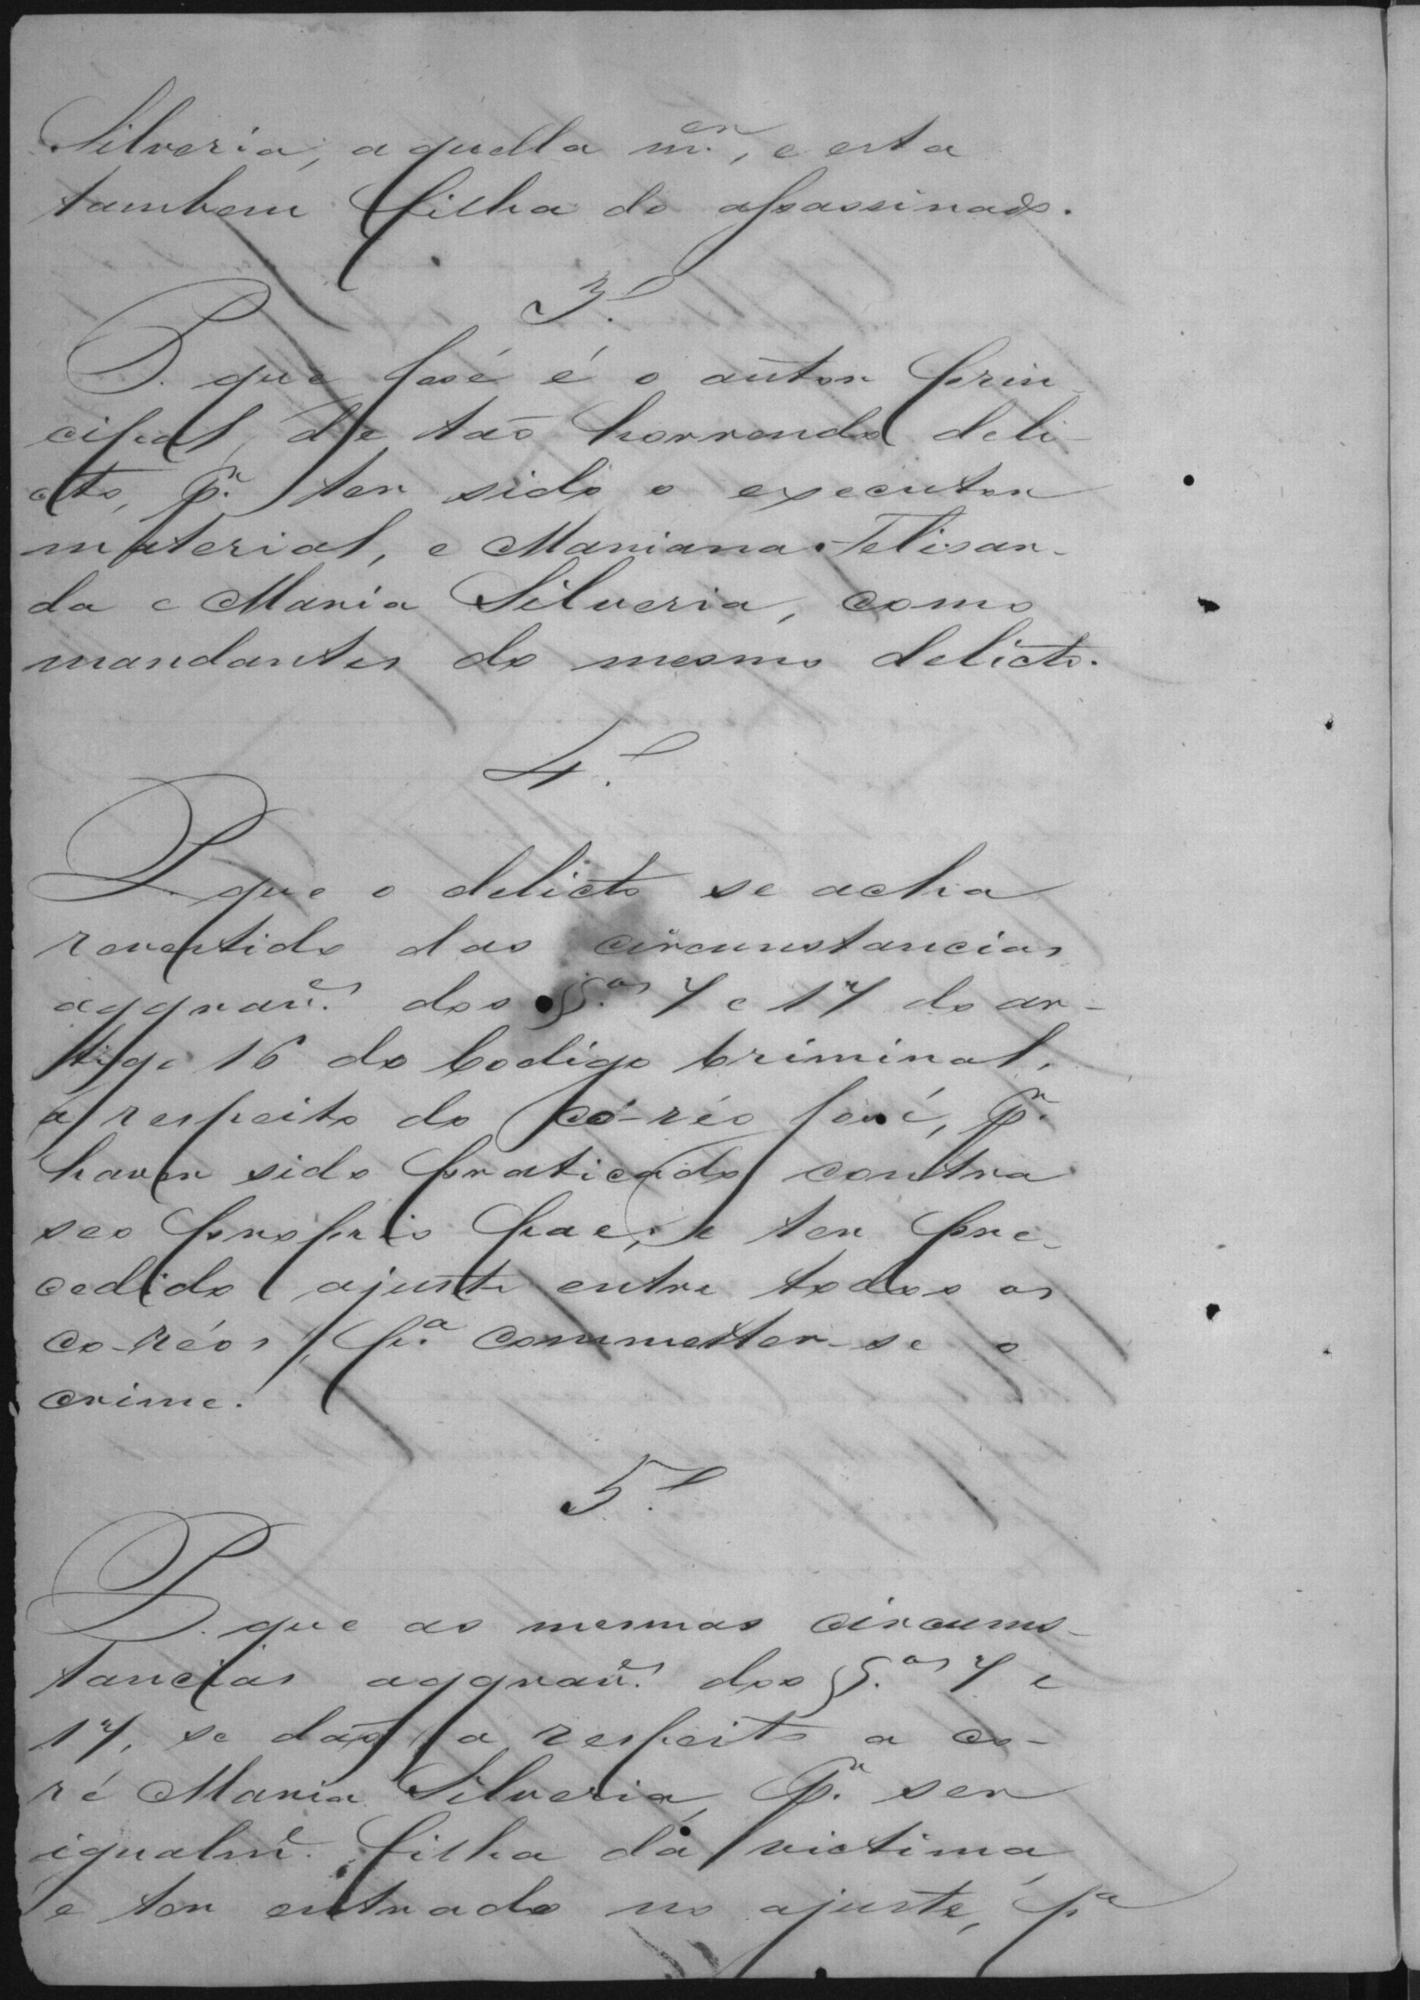 Silveria, aquella m.er, e esta
tambem filha do assassinado.
3.º
P. que José é o autor prin-
cipal, de tão horrendo deli-
cto, p.r ter sido o executor
material, e Mariana Felisar-
da e Maria Silveria, como
mandantes do mesmo delicto.
4.º
P. que o delicto se acha
revestido das circunstancias
aggrav.es dos §.os 7 e 17 do ar-
tigo 16 do Codigo Criminal,
a respeito do co-réo José, p.r
haver sido praticado contra
seo proprio pae, e ter pre-
cedido ajuste entre todos os
co-réos, p.a commetter-se o
crime.
5.º
P. que as mesmas circums-
tancias aggrav.es dos §.os 7 e
17, se dão a respeito a co-
ré Maria Silveria, p.r ser
igualm.e filha da victima,
e ter entrado no ajuste, p.a